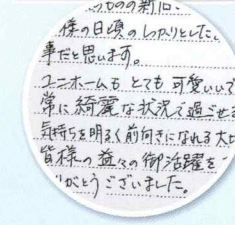 様の日頃のしっかりとした
事だと思います。
ユニホームもとても可愛いいで
常に綺麗な状況で過ごせる
気持ちを明るく前向きになれる大
皆様の益々の御活躍を
がとうございました。